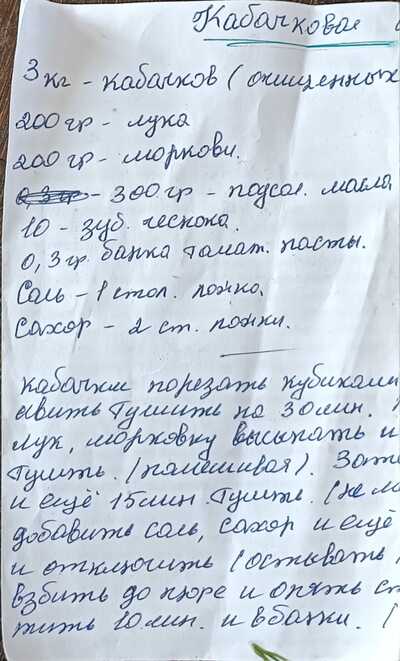 Кабачковая
3 кг - кабачков (очищенных
200 гр - лука
200 гр - моркови.
- 300 гр - подсол. масла
10 - зуб. чеснока.
0,3 гр. банка томат. пасты.
Соль - 1 стол. ложка.
Сахар - 2 ст. ложки.
Кабачки порезать кубиками
авить тушить на 30 мин.
лук, морковку высыпать и
тушить. (помешивая). Зате
и ещё 15 мин. тушить. (не
добавить соль, сахар и ещё
и отключить (остывать
взбить до пюре и опять ст
жить 10 мин. и в банки. (